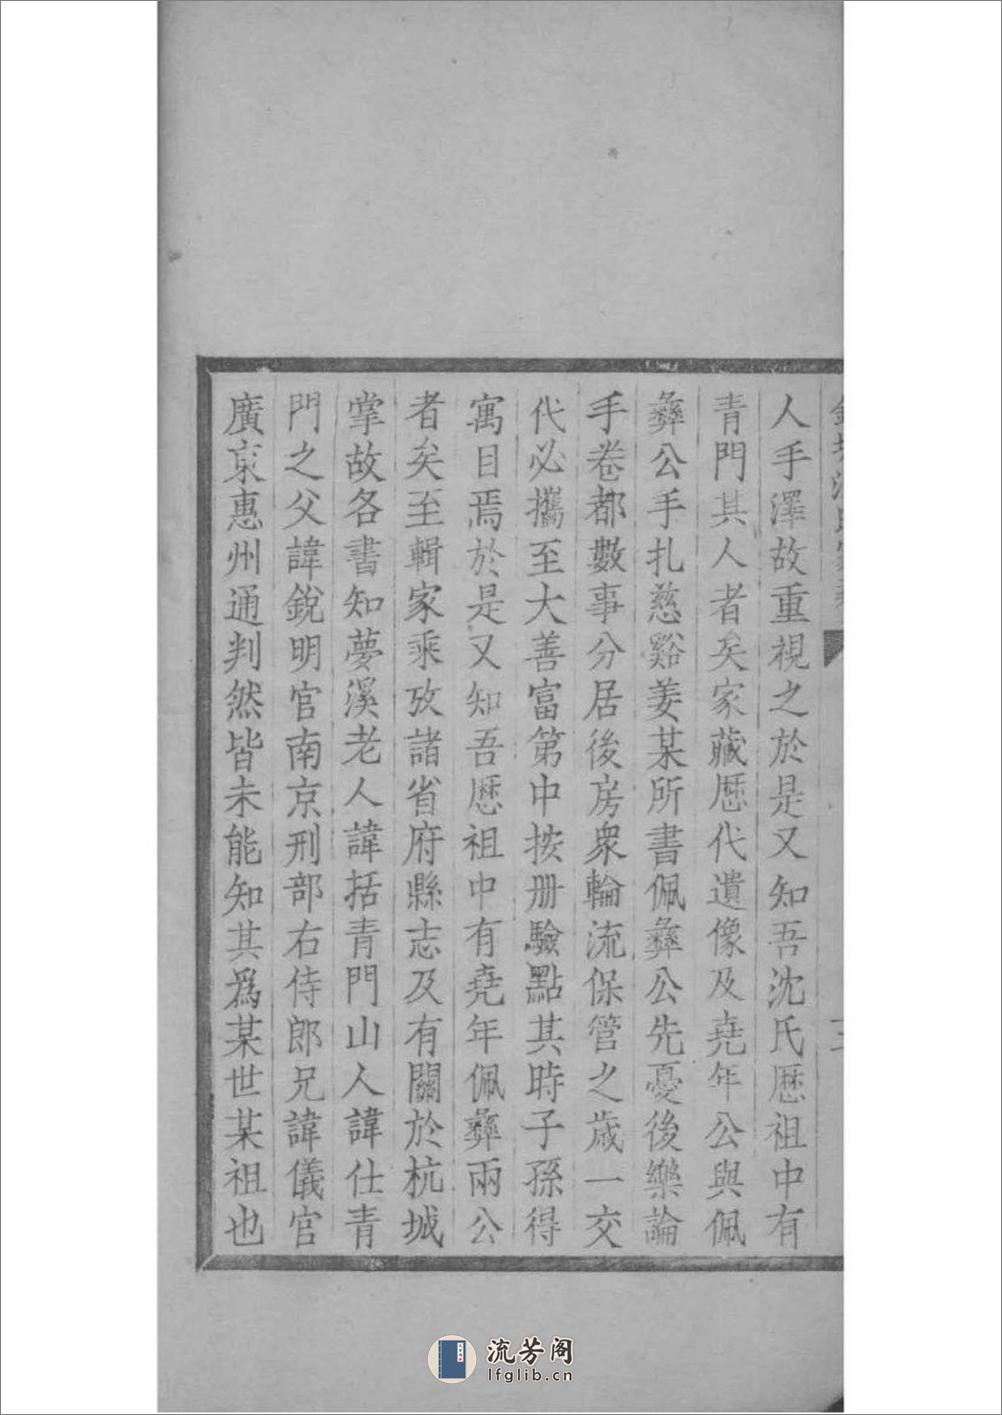 人手澤故重視之於是又知吾沈氏歴祖中有
青門其人者矣家藏歴代遺像及堯年公與佩
彝公手扎慈谿姜某所書佩彝公先憂後樂論
手卷都數事分居後房衆輪流保管之歲一交
代必攜至大善富第中按册驗點其時子孫得
寓目焉於是又知吾歴祖中有堯年佩彝兩公
者矣至輯家乘攷諸省府縣志及有關於杭城
掌故各書知夢溪老人諱括青門山人諱仕青
門之父諱銳明官南京刑部右侍郎兄諱儀官
廣東惠州通判然皆未能知其爲某世某祖也
流芳阁
lfglib.cn